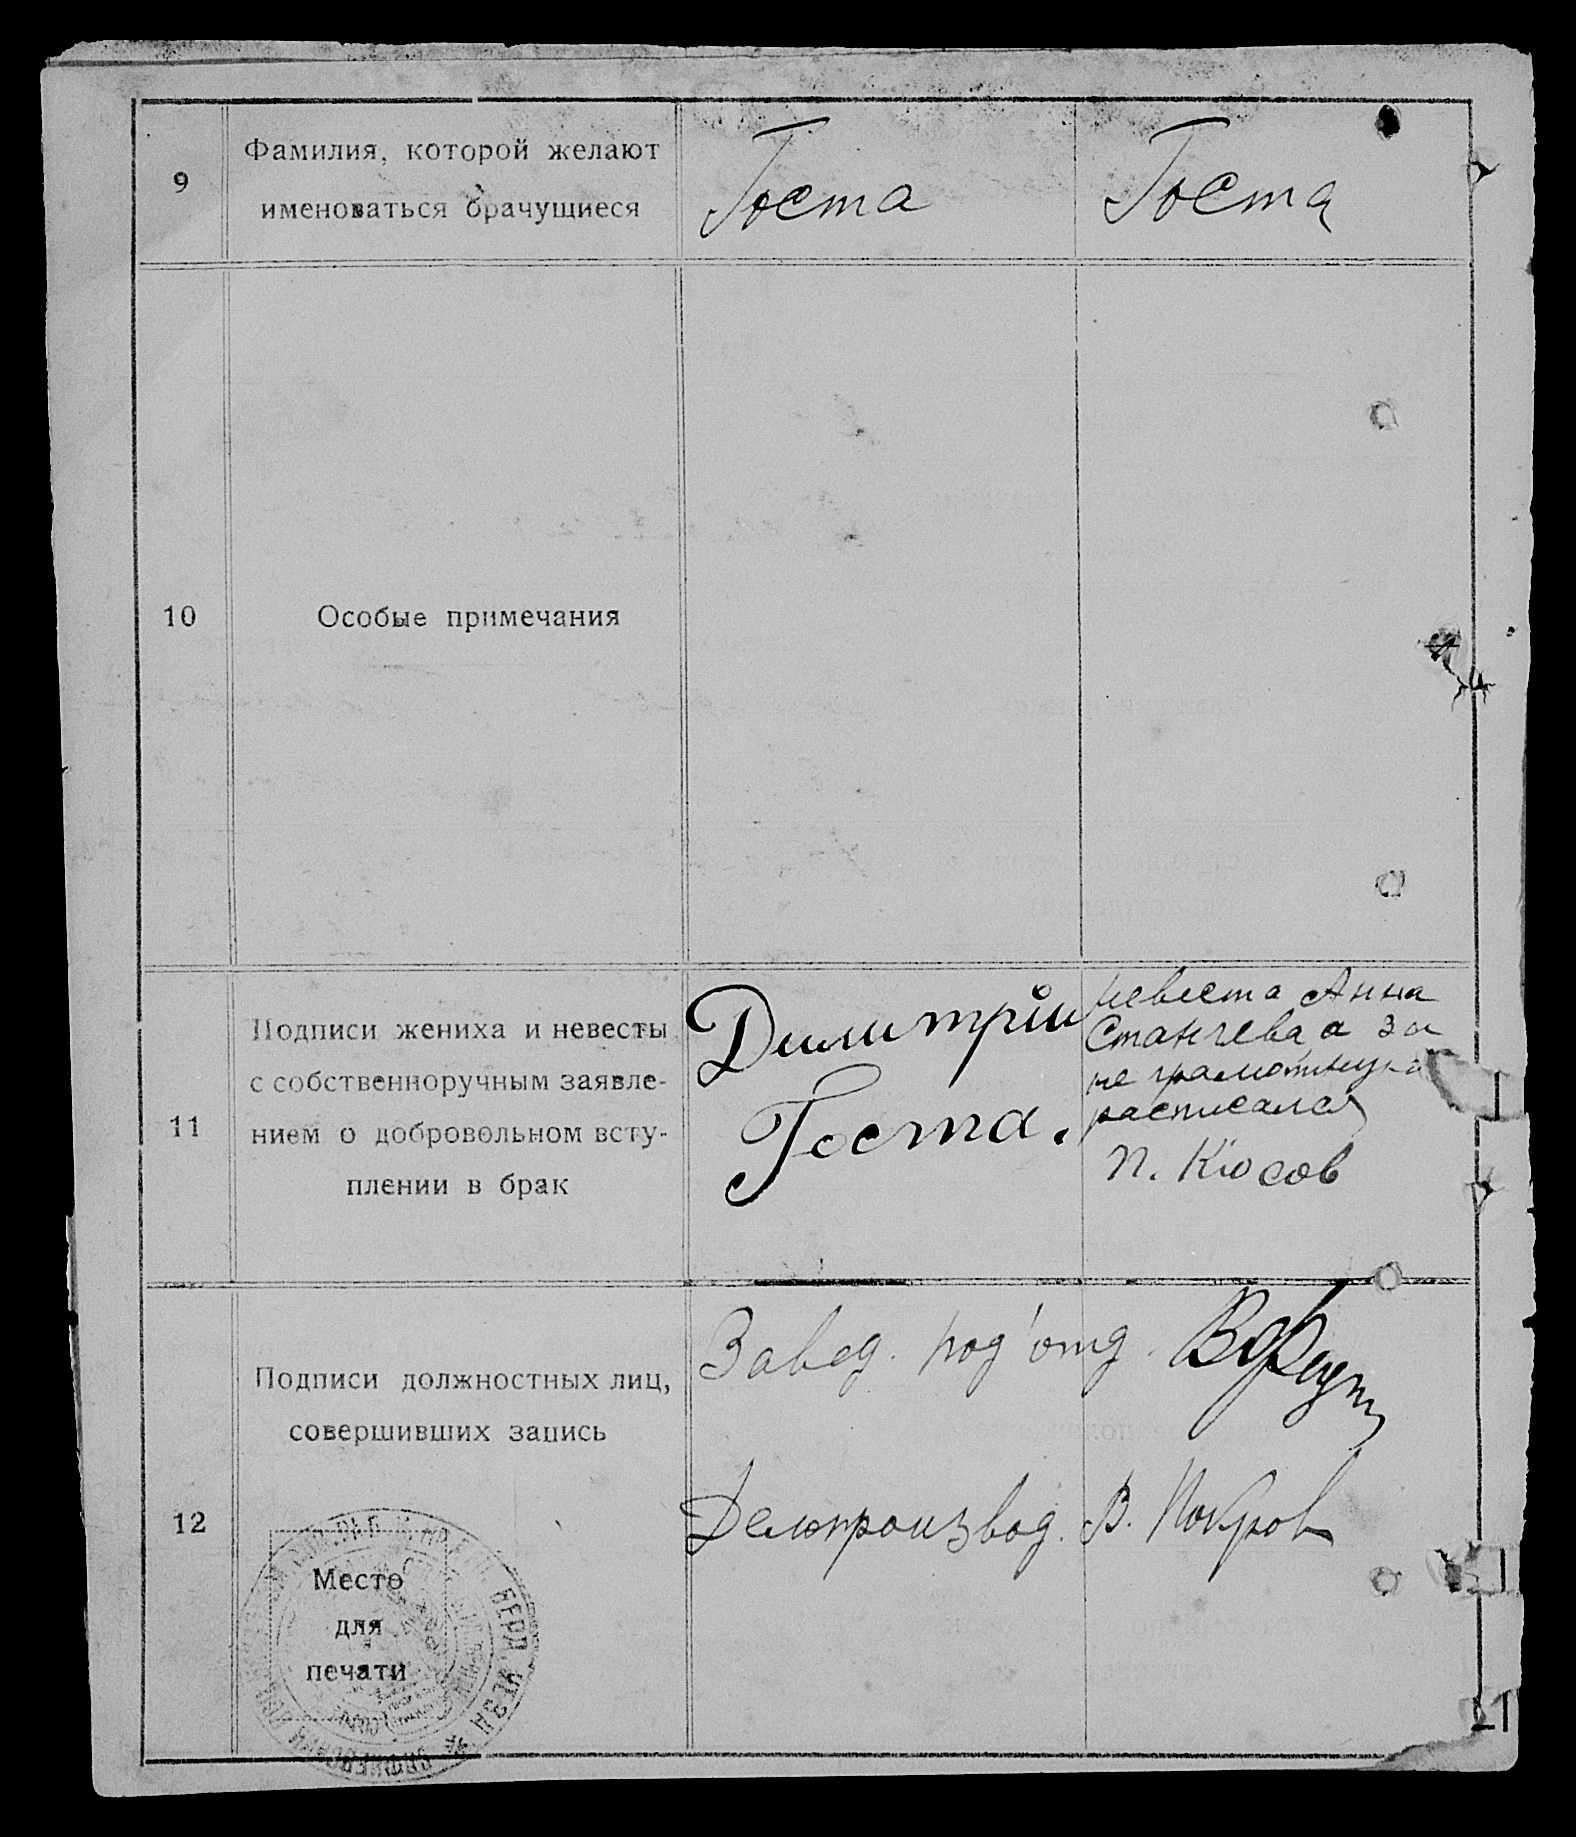 9
Фамилия, которой желают
именоваться брачущиеся
Госта
Госта
10
Особые примечания
11
Подписи жениха и невесты
с собственноручным заявле-
нием о добровольном всту-
плении в брак
Димитрій
Госта.
невеста Анна
Станчева, а за
не грамотную
расписался
П. Кюсов
12
Подписи должностных лиц,
совершивших запись
Завед. под'отд.
Делопроизвод. В. Покров
Место
для
печати
БЕРД. УЕЗН